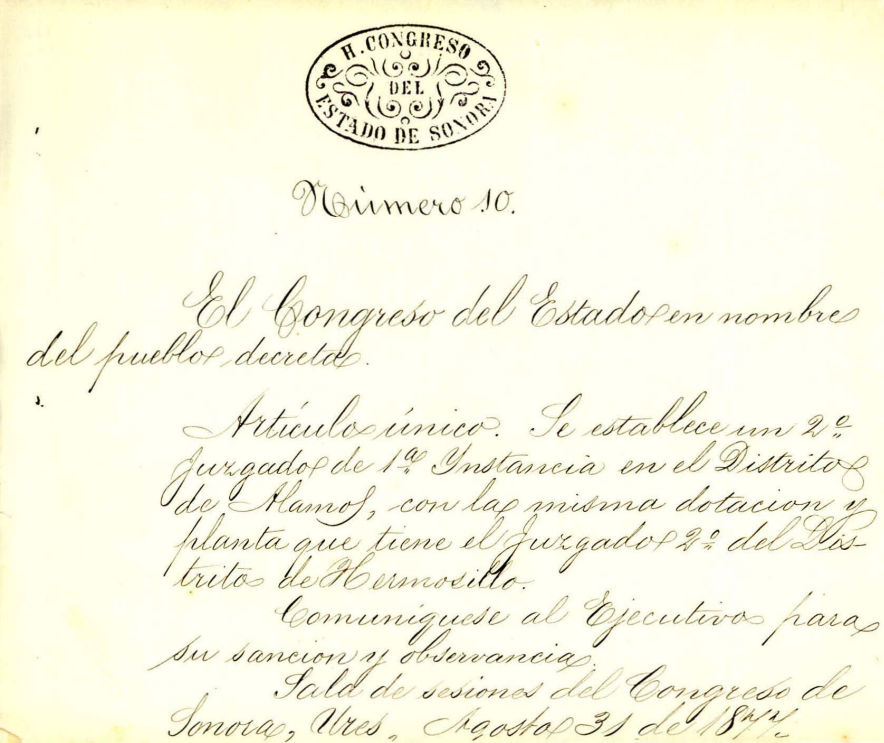 H. CONGRESO
DEL
ESTADO DE SONORA
Número 10.
El Congreso del Estado en nombre
del pueblo decreta.
Artículo único. Se establece un 2º
Juzgado de 1ª Ynstancia en el Distrito
de Alamos, con la misma dotacion y
planta que tiene el Juzgado 2º del Dis-
trito de Hermosillo.
Comuníquese al Ejecutivo para
su sancion y observancia.
Sala de sesiones del Congreso de
Sonora, Ures, Agosto 31 de 1877.